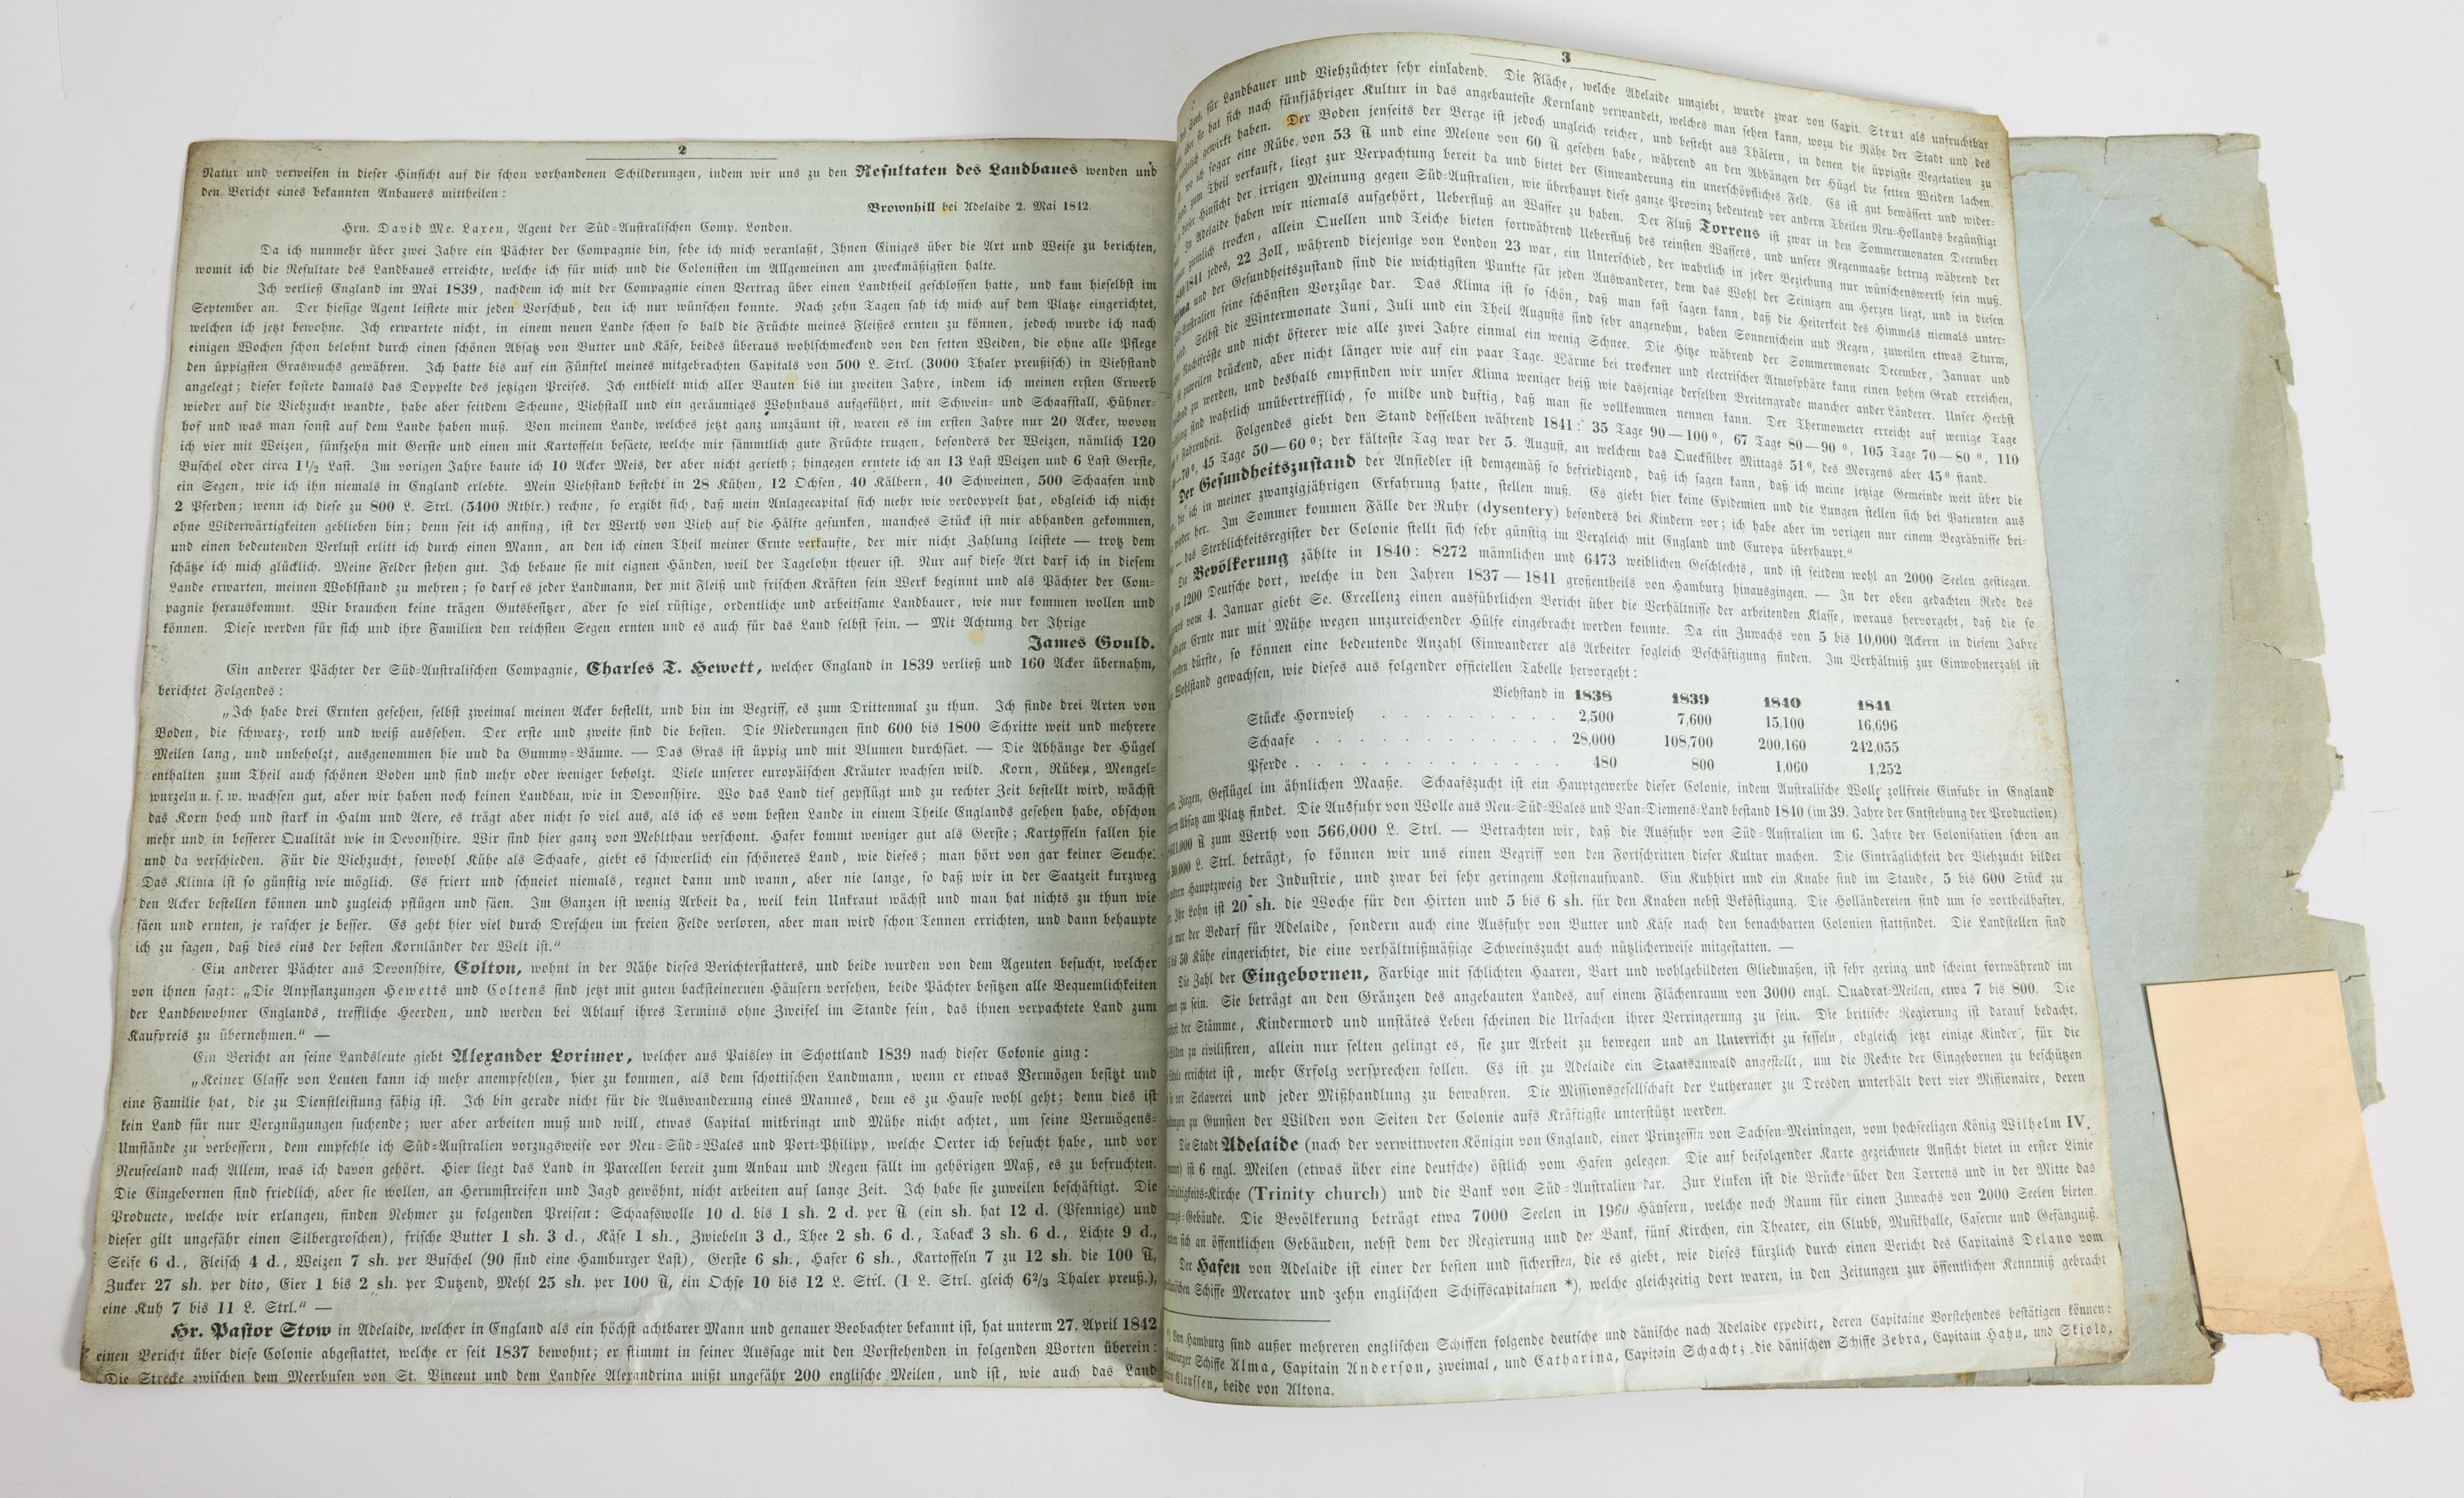 2
Natur und verweisen in dieser Hinsicht auf die schon vorhandenen Schilderungen, indem wir uns zu den Resultaten des Landbaues wenden und
den Bericht eines bekannten Anbauers mittheilen:
Brownhill bei Adelaide 2. Mai 1842.
Hrn. David Mc. Laren, Agent der Süd-Australischen Comp. London.
Da ich nunmehr über zwei Jahre ein Pächter der Compagnie bin, sehe ich mich veranlaßt, Ihnen Einiges über die Art und Weise zu berichten,
womit ich die Resultate des Landbaues erreichte, welche ich für mich und die Colonisten im Allgemeinen am zweckmäßigsten halte.
Ich verließ England im Mai 1839, nachdem ich mit der Compagnie einen Vertrag über einen Landtheil geschlossen hatte, und kam hieselbst im
September an. Der hiesige Agent leistete mir jeden Vorschub, den ich nur wünschen konnte. Nach zehn Tagen sah ich mich auf dem Platze eingerichtet,
welchen ich jetzt bewohne. Ich erwartete nicht, in einem neuen Lande schon so bald die Früchte meines Fleißes ernten zu können, jedoch wurde ich nach
einigen Wochen schon belohnt durch einen schönen Absatz von Butter und Käse, beides überaus wohlschmeckend von den fetten Weiden, die ohne alle Pflege
den üppigsten Graswuchs gewähren. Ich hatte bis auf ein Fünftel meines mitgebrachten Capitals von 500 L. Strl. (3000 Thaler preußisch) in Viehstand
angelegt; dieser kostete damals das Doppelte des jetzigen Preises. Ich enthielt mich aller Bauten bis im zweiten Jahre, indem ich meinen ersten Erwerb
wieder auf die Viehzucht wandte, habe aber seitdem Scheune, Viehstall und ein geräumiges Wohnhaus aufgeführt, mit Schwein- und Schaafstall, Hühner-
hof und was man sonst auf dem Lande haben muß. Von meinem Lande, welches jetzt ganz umzäunt ist, waren es im ersten Jahre nur 20 Acker, wovon
ich vier mit Weizen, fünfzehn mit Gerste und einen mit Kartoffeln besäete, welche mir sämmtlich gute Früchte trugen, besonders der Weizen, nämlich 120
Buschel oder circa 1½ Last. Im vorigen Jahre baute ich 10 Acker Meis, der aber nicht gerieth; hingegen erntete ich an 13 Last Weizen und 6 Last Gerste,
ein Segen, wie ich ihn niemals in England erlebte. Mein Viehstand besteht in 28 Kühen, 12 Ochsen, 40 Kälbern, 40 Schweinen, 500 Schaafen und
2 Pferden; wenn ich diese zu 800 L. Strl. (5400 Rthlr.) rechne, so ergibt sich, daß mein Anlagecapital sich mehr wie verdoppelt hat, obgleich ich nicht
ohne Widerwärtigkeiten geblieben bin; denn seit ich anfing, ist der Werth von Vieh auf die Hälfte gesunken, manches Stück ist mir abhanden gekommen,
und einen bedeutenden Verlust erlitt ich durch einen Mann, an den ich einen Theil meiner Ernte verkaufte, der mir nicht Zahlung leistete — trotz dem
schätze ich mich glücklich. Meine Felder stehen gut. Ich bebaue sie mit eignen Händen, weil der Tagelohn theuer ist. Nur auf diese Art darf ich in diesem
Lande erwarten, meinen Wohlstand zu mehren; so darf es jeder Landmann, der mit Fleiß und frischen Kräften sein Werk beginnt und als Pächter der Com-
pagnie herauskommt. Wir brauchen keine trägen Gutsbesitzer, aber so viel rüstige, ordentliche und arbeitsame Landbauer, wie nur kommen wollen und
können. Diese werden für sich und ihre Familien den reichsten Segen ernten und es auch für das Land selbst sein. — Mit Achtung der Ihrige
James Gould.
Ein anderer Pächter der Süd-Australischen Compagnie, Charles T. Hewett, welcher England in 1839 verließ und 160 Acker übernahm,
berichtet Folgendes:
„Ich habe drei Ernten gesehen, selbst zweimal meinen Acker bestellt, und bin im Begriff, es zum Drittenmal zu thun. Ich finde drei Arten von
Boden, die schwarz-, roth und weiß aussehen. Der erste und zweite sind die besten. Die Niederungen sind 600 bis 1800 Schritte weit und mehrere
Meilen lang, und unbeholzt, ausgenommen hie und da Gummy-Bäume. — Das Gras ist üppig und mit Blumen durchsäet. — Die Abhänge der Hügel
enthalten zum Theil auch schönen Boden und sind mehr oder weniger beholzt. Viele unserer europäischen Kräuter wachsen wild. Korn, Rüben, Mengel-
wurzeln u. s. w. wachsen gut, aber wir haben noch keinen Landbau, wie in Devonshire. Wo das Land tief gepflügt und zu rechter Zeit bestellt wird, wächst
das Korn hoch und stark in Halm und Aere, es trägt aber nicht so viel aus, als ich es vom besten Lande in einem Theile Englands gesehen habe, obschon
mehr und in besserer Qualität wie in Devonshire. Wir sind hier ganz von Mehlthau verschont. Hafer kommt weniger gut als Gerste; Kartoffeln fallen hie
und da verschieden. Für die Viehzucht, sowohl Kühe als Schaafe, giebt es schwerlich ein schöneres Land, wie dieses; man hört von gar keiner Seuche.
Das Klima ist so günstig wie möglich. Es friert und schneiet niemals, regnet dann und wann, aber nie lange, so daß wir in der Saatzeit kurzweg
den Acker bestellen können und zugleich pflügen und säen. Im Ganzen ist wenig Arbeit da, weil kein Unkraut wächst und man hat nichts zu thun wie
säen und ernten, je rascher je besser. Es geht hier viel durch Dreschen im freien Felde verloren, aber man wird schon Tennen errichten, und dann behaupte
ich zu sagen, daß dies eins der besten Kornländer der Welt ist.“
Ein anderer Pächter aus Devonshire, Colton, wohnt in der Nähe dieses Berichterstatters, und beide wurden von dem Agenten besucht, welcher
von ihnen sagt: „Die Anpflanzungen Hewetts und Coltens sind jetzt mit guten backsteinernen Häusern versehen, beide Pächter besitzen alle Bequemlichkeiten
der Landbewohner Englands, treffliche Heerden, und werden bei Ablauf ihres Termins ohne Zweifel im Stande sein, das ihnen verpachtete Land zum
Kaufpreis zu übernehmen.“ —
Ein Bericht an seine Landsleute giebt Alexander Lorimer, welcher aus Paisley in Schottland 1839 nach dieser Colonie ging:
„Keiner Classe von Leuten kann ich mehr anempfehlen, hier zu kommen, als dem schottischen Landmann, wenn er etwas Vermögen besitzt und
eine Familie hat, die zu Dienstleistung fähig ist. Ich bin gerade nicht für die Auswanderung eines Mannes, dem es zu Hause wohl geht; denn dies ist
kein Land für nur Vergnügungen suchende; wer aber arbeiten muß und will, etwas Capital mitbringt und Mühe nicht achtet, um seine Vermögens-
Umstände zu verbessern, dem empfehle ich Süd-Australien vorzugsweise vor Neu-Süd-Wales und Port-Philipp, welche Oerter ich besucht habe, und vor
Neuseeland nach Allem, was ich davon gehört. Hier liegt das Land in Parcellen bereit zum Anbau und Regen fällt im gehörigen Maß, es zu befruchten.
Die Eingebornen sind friedlich, aber sie wollen, an Herumstreifen und Jagd gewöhnt, nicht arbeiten auf lange Zeit. Ich habe sie zuweilen beschäftigt. Die
Producte, welche wir erlangen, finden Nehmer zu folgenden Preisen: Schaafswolle 10 d. bis 1 sh. 2 d. per ℔ (ein sh. hat 12 d. (Pfennige) und
dieser gilt ungefähr einen Silbergroschen), frische Butter 1 sh. 3 d., Käse 1 sh., Zwiebeln 3 d., Thee 2 sh. 6 d., Taback 3 sh. 6 d., Lichte 9 d.,
Seife 6 d., Fleisch 4 d., Weizen 7 sh. per Buschel (90 sind eine Hamburger Last), Gerste 6 sh., Hafer 6 sh., Kartoffeln 7 zu 12 sh. die 100 ℔,
Zucker 27 sh. per dito, Eier 1 bis 2 sh. per Dutzend, Mehl 25 sh. per 100 ℔, ein Ochse 10 bis 12 L. Strl. (1 L. Strl. gleich 6⅔ Thaler preuß.),
eine Kuh 7 bis 11 L. Strl.“ —
Hr. Pastor Stow in Adelaide, welcher in England als ein höchst achtbarer Mann und genauer Beobachter bekannt ist, hat unterm 27. April 1842
einen Bericht über diese Colonie abgestattet, welche er seit 1837 bewohnt; er stimmt in seiner Aussage mit den Vorstehenden in folgenden Worten überein:
Die Strecke zwischen dem Meerbusen von St. Vincent und dem Landsee Alexandrina mißt ungefähr 200 englische Meilen, und ist, wie auch das Land
3
für Landbauer und Viehzüchter sehr einladend. Die Fläche, welche Adelaide umgiebt, wurde zwar von Capit. Strut als unfruchtbar
aber sie hat sich nach fünfjähriger Kultur in das angebauteste Kornland verwandelt, welches man sehen kann, wozu die Nähe der Stadt und des
gewirkt haben. Der Boden jenseits der Berge ist jedoch ungleich reicher, und besteht aus Thälern, in denen die üppigste Vegetation zu
wo ich sogar eine Rübe von 53 ℔ und eine Melone von 60 ℔ gesehen habe, während an den Abhängen der Hügel die fetten Weiden lachen.
zum Theil verkauft, liegt zur Verpachtung bereit da und bietet der Einwanderung ein unerschöpfliches Feld. Es ist gut bewässert und wider-
dieser Hinsicht der irrigen Meinung gegen Süd-Australien, wie überhaupt diese ganze Provinz bedeutend vor andern Theilen Neu-Hollands begünstigt
In Adelaide haben wir niemals aufgehört, Ueberfluß an Wasser zu haben. Der Fluß Torrens ist zwar in den Sommermonaten December
ziemlich trocken, allein Quellen und Teiche bieten fortwährend Ueberfluß des reinsten Wassers, und unsere Regenmaaße betrug während der
1841 jedes, 22 Zoll, während diejenige von London 23 war, ein Unterschied, der wahrlich in jeder Beziehung nur wünschenswerth sein muß.
und der Gesundheitszustand sind die wichtigsten Punkte für jeden Auswanderer, dem das Wohl der Seinigen am Herzen liegt, und in diesen
Süd-Australien seine schönsten Vorzüge dar. Das Klima ist so schön, daß man fast sagen kann, daß die Heiterkeit des Himmels niemals unter-
wird. Selbst die Wintermonate Juni, Juli und ein Theil Augusts sind sehr angenehm, haben Sonnenschein und Regen, zuweilen etwas Sturm,
Nachtfröste und nicht öfterer wie alle zwei Jahre einmal ein wenig Schnee. Die Hitze während der Sommermonate December, Januar und
ist zuweilen drückend, aber nicht länger wie auf ein paar Tage. Wärme bei trockener und electrischer Atmosphäre kann einen hohen Grad erreichen,
zu werden, und deshalb empfinden wir unser Klima weniger heiß wie dasjenige derselben Breitengrade mancher ander Länderer. Unser Herbst
sind wahrlich unübertrefflich, so milde und duftig, daß man sie vollkommen nennen kann. Der Thermometer erreicht auf wenige Tage
Fahrenheit. Folgendes giebt den Stand desselben während 1841: 35 Tage 90—100°, 67 Tage 80—90°, 105 Tage 70—80°, 110
—70°, 45 Tage 50—60°; der kälteste Tag war der 5. August, an welchem das Quecksilber Mittags 51°, des Morgens aber 45° stand.
Der Gesundheitszustand der Ansiedler ist demgemäß so befriedigend, daß ich sagen kann, daß ich meine jetzige Gemeinde weit über die
die ich in meiner zwanzigjährigen Erfahrung hatte, stellen muß. Es giebt hier keine Epidemien und die Lungen stellen sich bei Patienten aus
wieder her. Im Sommer kommen Fälle der Ruhr (dysentery) besonders bei Kindern vor; ich habe aber im vorigen nur einem Begräbnisse bei-
— das Sterblichkeitsregister der Colonie stellt sich sehr günstig im Vergleich mit England und Europa überhaupt.“
Die Bevölkerung zählte in 1840: 8272 männlichen und 6473 weiblichen Geschlechts, und ist seitdem wohl an 2000 Seelen gestiegen.
an 1200 Deutsche dort, welche in den Jahren 1837—1841 großentheils von Hamburg hinausgingen. — In der oben gedachten Rede des
vom 4. Januar giebt Se. Excellenz einen ausführlichen Bericht über die Verhältnisse der arbeitenden Klasse, woraus hervorgeht, daß die so
Ernte nur mit Mühe wegen unzureichender Hülfe eingebracht werden konnte. Da ein Zuwachs von 5 bis 10,000 Ackern in diesem Jahre
werden dürfte, so können eine bedeutende Anzahl Einwanderer als Arbeiter sogleich Beschäftigung finden. Im Verhältniß zur Einwohnerzahl ist
Wohlstand gewachsen, wie dieses aus folgender officiellen Tabelle hervorgeht:
Viehstand in 1838 1839 1840 1841
Stücke Hornvieh . . . . . . . . . 2,500 7,600 15,100 16,696
Schaafe . . . . . . . . . . . . 28,000 108,700 200,160 242,055
Pferde . . . . . . . . . . . . . 480 800 1,060 1,252
Ziegen, Geflügel im ähnlichen Maaße. Schaafszucht ist ein Hauptgewerbe dieser Colonie, indem Australische Wolle zollfreie Einfuhr in England
Absatz am Platz findet. Die Ausfuhr von Wolle aus Neu-Süd-Wales und Van-Diemens-Land bestand 1840 (im 39. Jahre der Entstehung der Production)
℔ zum Werth von 566,000 L. Strl. — Betrachten wir, daß die Ausfuhr von Süd-Australien im 6. Jahre der Colonisation schon an
30,000 L. Strl. beträgt, so können wir uns einen Begriff von den Fortschritten dieser Kultur machen. Die Einträglichkeit der Viehzucht bildet
andern Hauptzweig der Industrie, und zwar bei sehr geringem Kostenaufwand. Ein Kuhhirt und ein Knabe sind im Stande, 5 bis 600 Stück zu
Ihr Lohn ist 20 sh. die Woche für den Hirten und 5 bis 6 sh. für den Knaben nebst Beköstigung. Die Holländereien sind um so vortheilhafter,
nur der Bedarf für Adelaide, sondern auch eine Ausfuhr von Butter und Käse nach den benachbarten Colonien stattfindet. Die Landstellen sind
bis 50 Kühe eingerichtet, die eine verhältnißmäßige Schweinszucht auch nützlicherweise mitgestatten. —
Die Zahl der Eingebornen, Farbige mit schlichten Haaren, Bart und wohlgebildeten Gliedmaßen, ist sehr gering und scheint fortwährend im
zu sein. Sie beträgt an den Gränzen des angebauten Landes, auf einem Flächenraum von 3000 engl. Quadrat-Meilen, etwa 7 bis 800. Die
der Stämme, Kindermord und unstätes Leben scheinen die Ursachen ihrer Verringerung zu sein. Die britische Regierung ist darauf bedacht,
Wilden zu civilisiren, allein nur selten gelingt es, sie zur Arbeit zu bewegen und an Unterricht zu fesseln, obgleich jetzt einige Kinder, für die
errichtet ist, mehr Erfolg versprechen sollen. Es ist zu Adelaide ein Staatsanwald angestellt, um die Rechte der Eingebornen zu beschützen
sie vor Sclaverei und jeder Mißhandlung zu bewahren. Die Missionsgesellschaft der Lutheraner zu Dresden unterhält dort vier Missionaire, deren
zu Gunsten der Wilden von Seiten der Colonie aufs Kräftigste unterstützt werden.
Die Stadt Adelaide (nach der verwittweten Königin von England, einer Prinzessin von Sachsen-Meiningen, vom hochseeligen König Wilhelm IV.
ist 6 engl. Meilen (etwas über eine deutsche) östlich vom Hafen gelegen. Die auf beifolgender Karte gezeichnete Ansicht bietet in erster Linie
Dreifaltigkeits-Kirche (Trinity church) und die Bank von Süd-Australien dar. Zur Linken ist die Brücke über den Torrens und in der Mitte das
Gebäude. Die Bevölkerung beträgt etwa 7000 Seelen in 1960 Häusern, welche noch Raum für einen Zuwachs von 2000 Seelen bieten.
sich an öffentlichen Gebäuden, nebst dem der Regierung und der Bank, fünf Kirchen, ein Theater, ein Clubb, Musikhalle, Caserne und Gefängniß.
Der Hafen von Adelaide ist einer der besten und sichersten, die es giebt, wie dieses kürzlich durch einen Bericht des Capitains Delano vom
Schiffe Mercator und zehn englischen Schiffscapitainen *), welche gleichzeitig dort waren, in den Zeitungen zur öffentlichen Kenntniß gebracht
*) Von Hamburg sind außer mehreren englischen Schiffen folgende deutsche und dänische nach Adelaide expedirt, deren Capitaine Vorstehendes bestätigen können:
Hamburger Schiffe Alma, Capitain Anderson, zweimal, und Catharina, Capitain Schacht; die dänischen Schiffe Zebra, Capitain Hahn, und Skiold,
Claussen, beide von Altona.